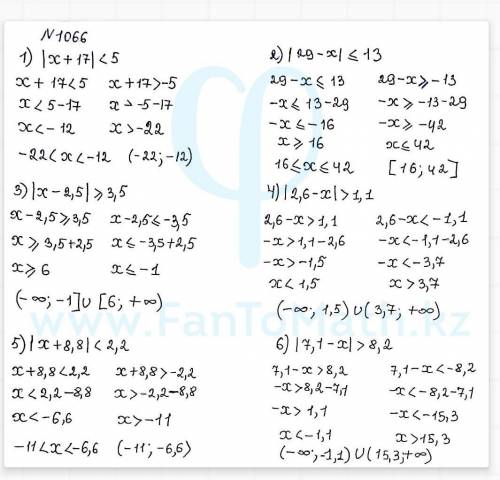 N1066
1) |x+17|<5
x+17<5 x+17>-5
x<5-17 x>-5-17
x<-12 x>-22
-22<x<-12 (-22;-12)
2) |29-x|≤13
29-x≤13 29-x≥-13
-x≤13-29 -x≥-13-29
-x≤-16 -x≥-42
x≥16 x≤42
16≤x≤42 [16;42]
3) |x-2,5|≥3,5
x-2,5≥3,5 x-2,5≤-3,5
x≥3,5+2,5 x≤-3,5+2,5
x≥6 x≤-1
(-∞;-1]∪[6;+∞)
4) |2,6-x|>1,1
2,6-x>1,1 2,6-x<-1,1
-x>1,1-2,6 -x<-1,1-2,6
-x>-1,5 -x<-3,7
x<1,5 x>3,7
(-∞; 1,5)∪(3,7;+∞)
www.FanToMath.kz
5) |x+8,8|<2,2
x+8,8<2,2 x+8,8>-2,2
x<2,2-8,8 x>-2,2-8,8
x<-6,6 x>-11
-11<x<-6,6 (-11;-6,6)
6) |7,1-x|>8,2
7,1-x>8,2 7,1-x<-8,2
-x>8,2-7,1 -x<-8,2-7,1
-x>1,1 -x<-15,3
x<-1,1 x>15,3
(-∞;-1,1)∪(15,3;+∞)